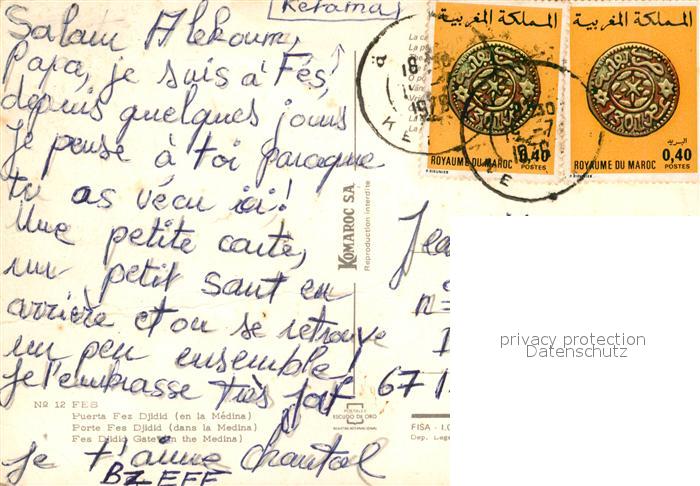 Ketama
Salam Alekoum,
Papa, je suis à Fés,
depuis quelques jours
je pense à toi parceque
tu as vécu ici!
Une petite carte,
un petit saut en
arrière et on se retrouve
un peu ensemble!
je t'embrasse très fort
je t'aime Chantal
BZEFF
Nº 12 FES
Puerta Fez Djidid (en la Médina)
Porte Fes Djidid (dans la Medina)
Fes Djidid Gate (in the Medina)
KOMAROC S.A.
Reproduction interdite
POSTALES
ESCUDO DE ORO
FISA - I.G.
Dep. Lega
المملكة المغربية
ROYAUME DU MAROC
0,40
POSTES
المملكة المغربية
البريد
0,40
ROYAUME DU MAROC
POSTES
18
1978
KE
Jea
n=
67 1
privacy protection
Datenschutz